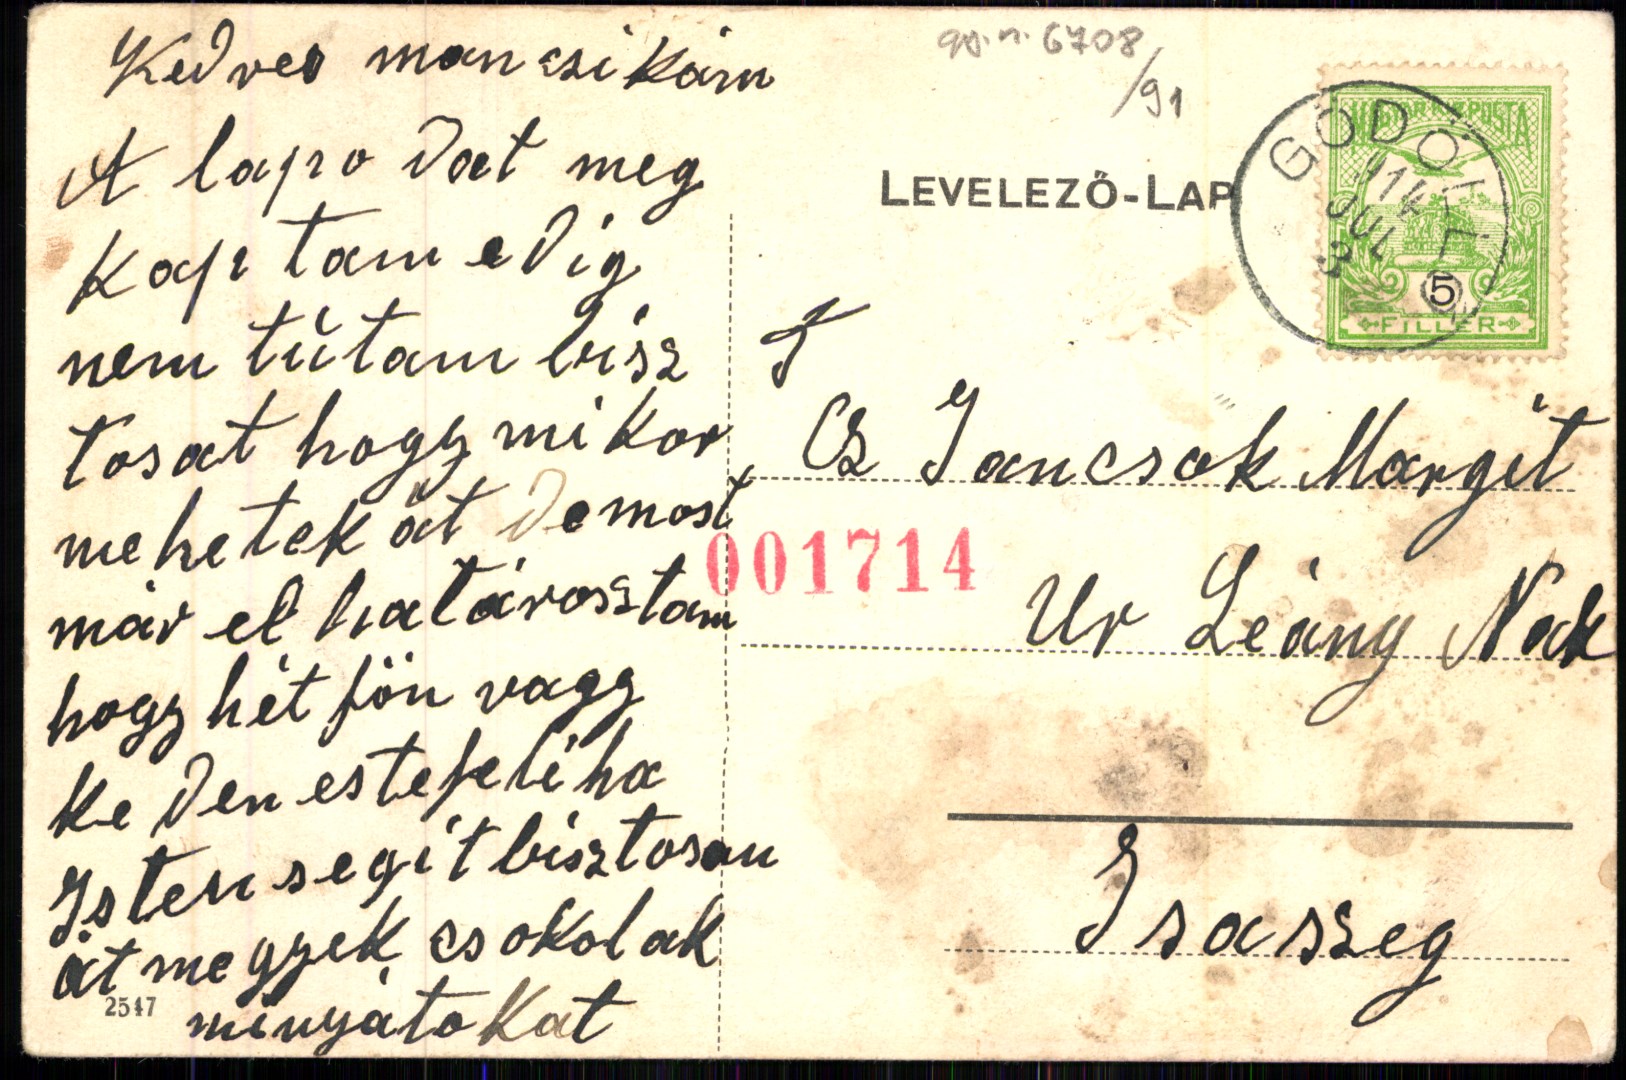 Kedves mancsikám
A lapo dat meg
kap tam edig
nem tútam bisz
tosat hogy mikor
mehetek át demost
már el határosztam
hogy hét fön vagy
ke den estefeli ha
Isten segít bisztosan
át megyek csokolak
minyátokat
2547
90.n. 6708/91
LEVELEZŐ-LAP
MAGYAR KIR. POSTA
5
FILLÉR
GÖDÖLLŐ
914 JUL
Cs Jancsok Margit
001714
Ur Leány Nak
Isaszeg